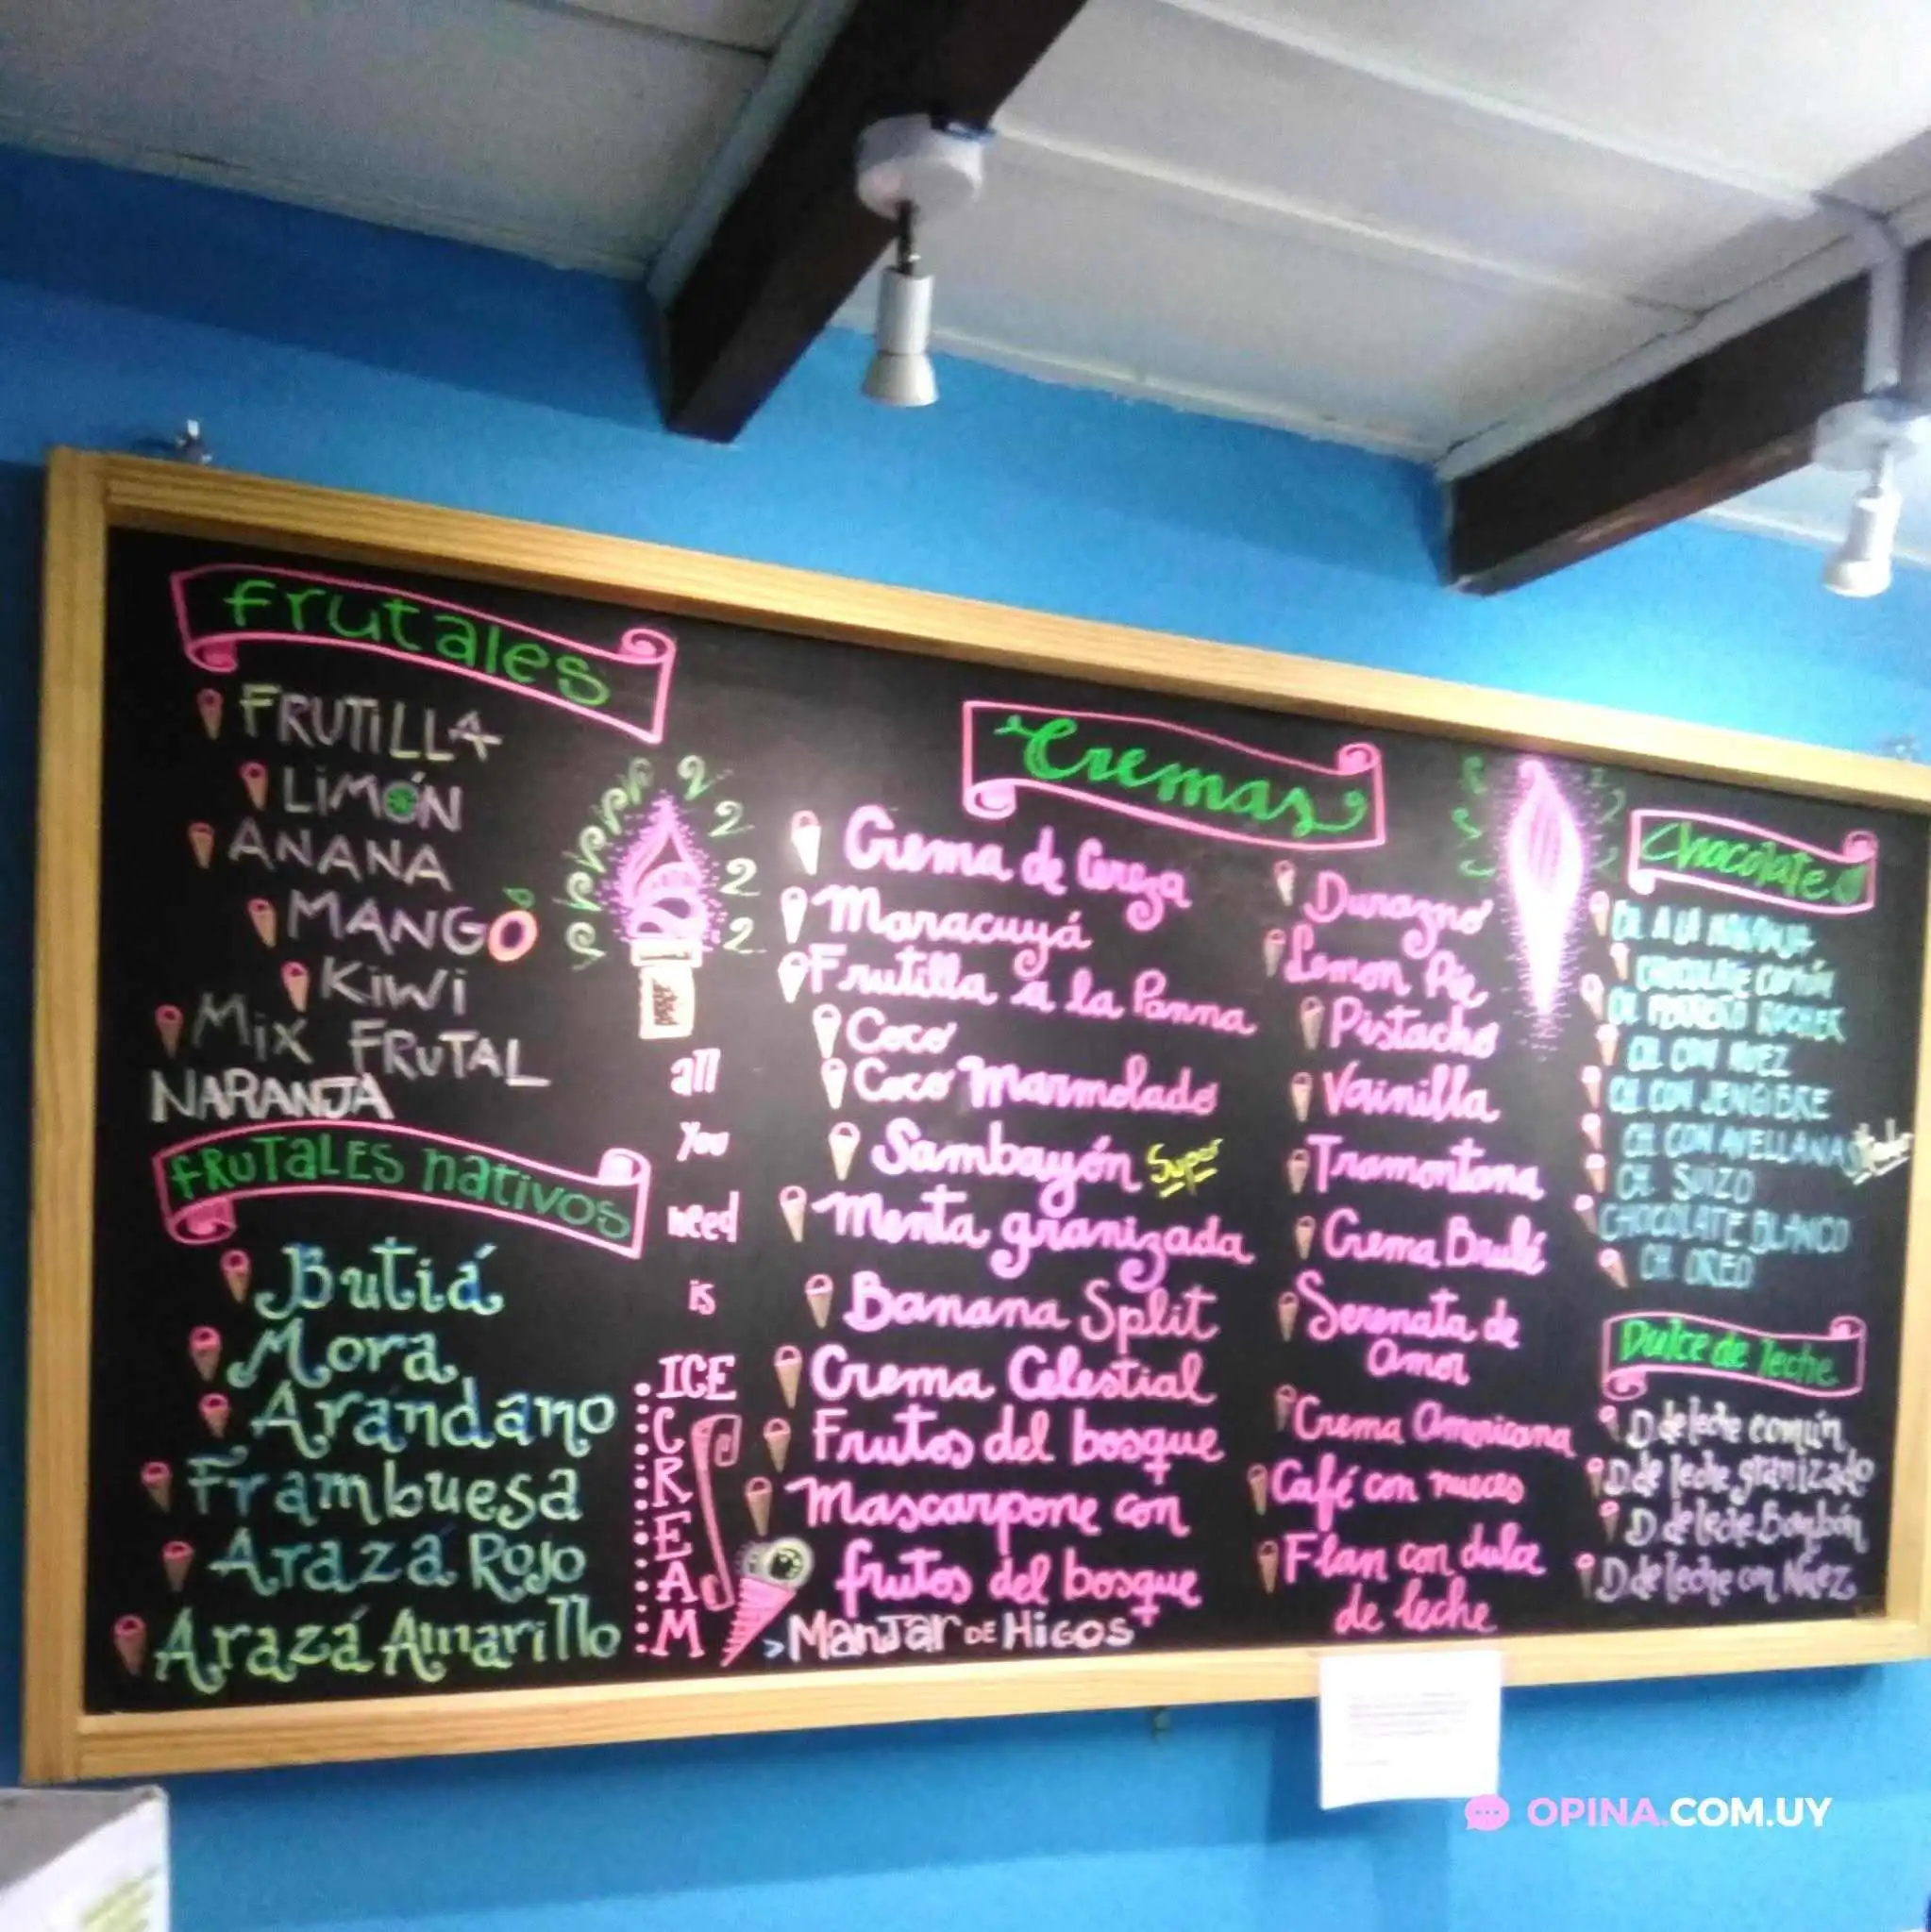 Frutales
FRUTILLA
LIMÓN
ANANA
MANGO
KIWI
MIX FRUTAL
NARANJA
FRUTALES nativos
Butiá
Mora
Arándano
Frambuesa
Arazá Rojo
Arazá Amarillo
all
you
need
is
ICE
CREAM
Cremas
Crema de Cereza
Maracuyá
Frutilla a la Panna
Coco
Coco Marmolado
Sambayón Super
Menta granizada
Banana Split
Crema Celestial
Frutos del bosque
Mascarpone con
frutos del bosque
>Manjar DE Higos
Durazno
Lemon Pie
Pistacho
Vainilla
Tramontana
Crema Brulé
Serenata de
Amor
Crema Americana
Café con nueces
Flan con dulce
de leche
Chocolate
CH. A LA NARANJA
CHOCOLATE COMÚN
CH. FERRERO ROCHER
CH. CON NUEZ
CH. CON JENGIBRE
CH. CON AVELLANAS
CH. SUIZO
CHOCOLATE BLANCO
CH. OREO
Dulce de leche
D. de leche común
D. de leche granizado
D. de leche Bombón
D. de leche con Nuez
OPINA.COM.UY